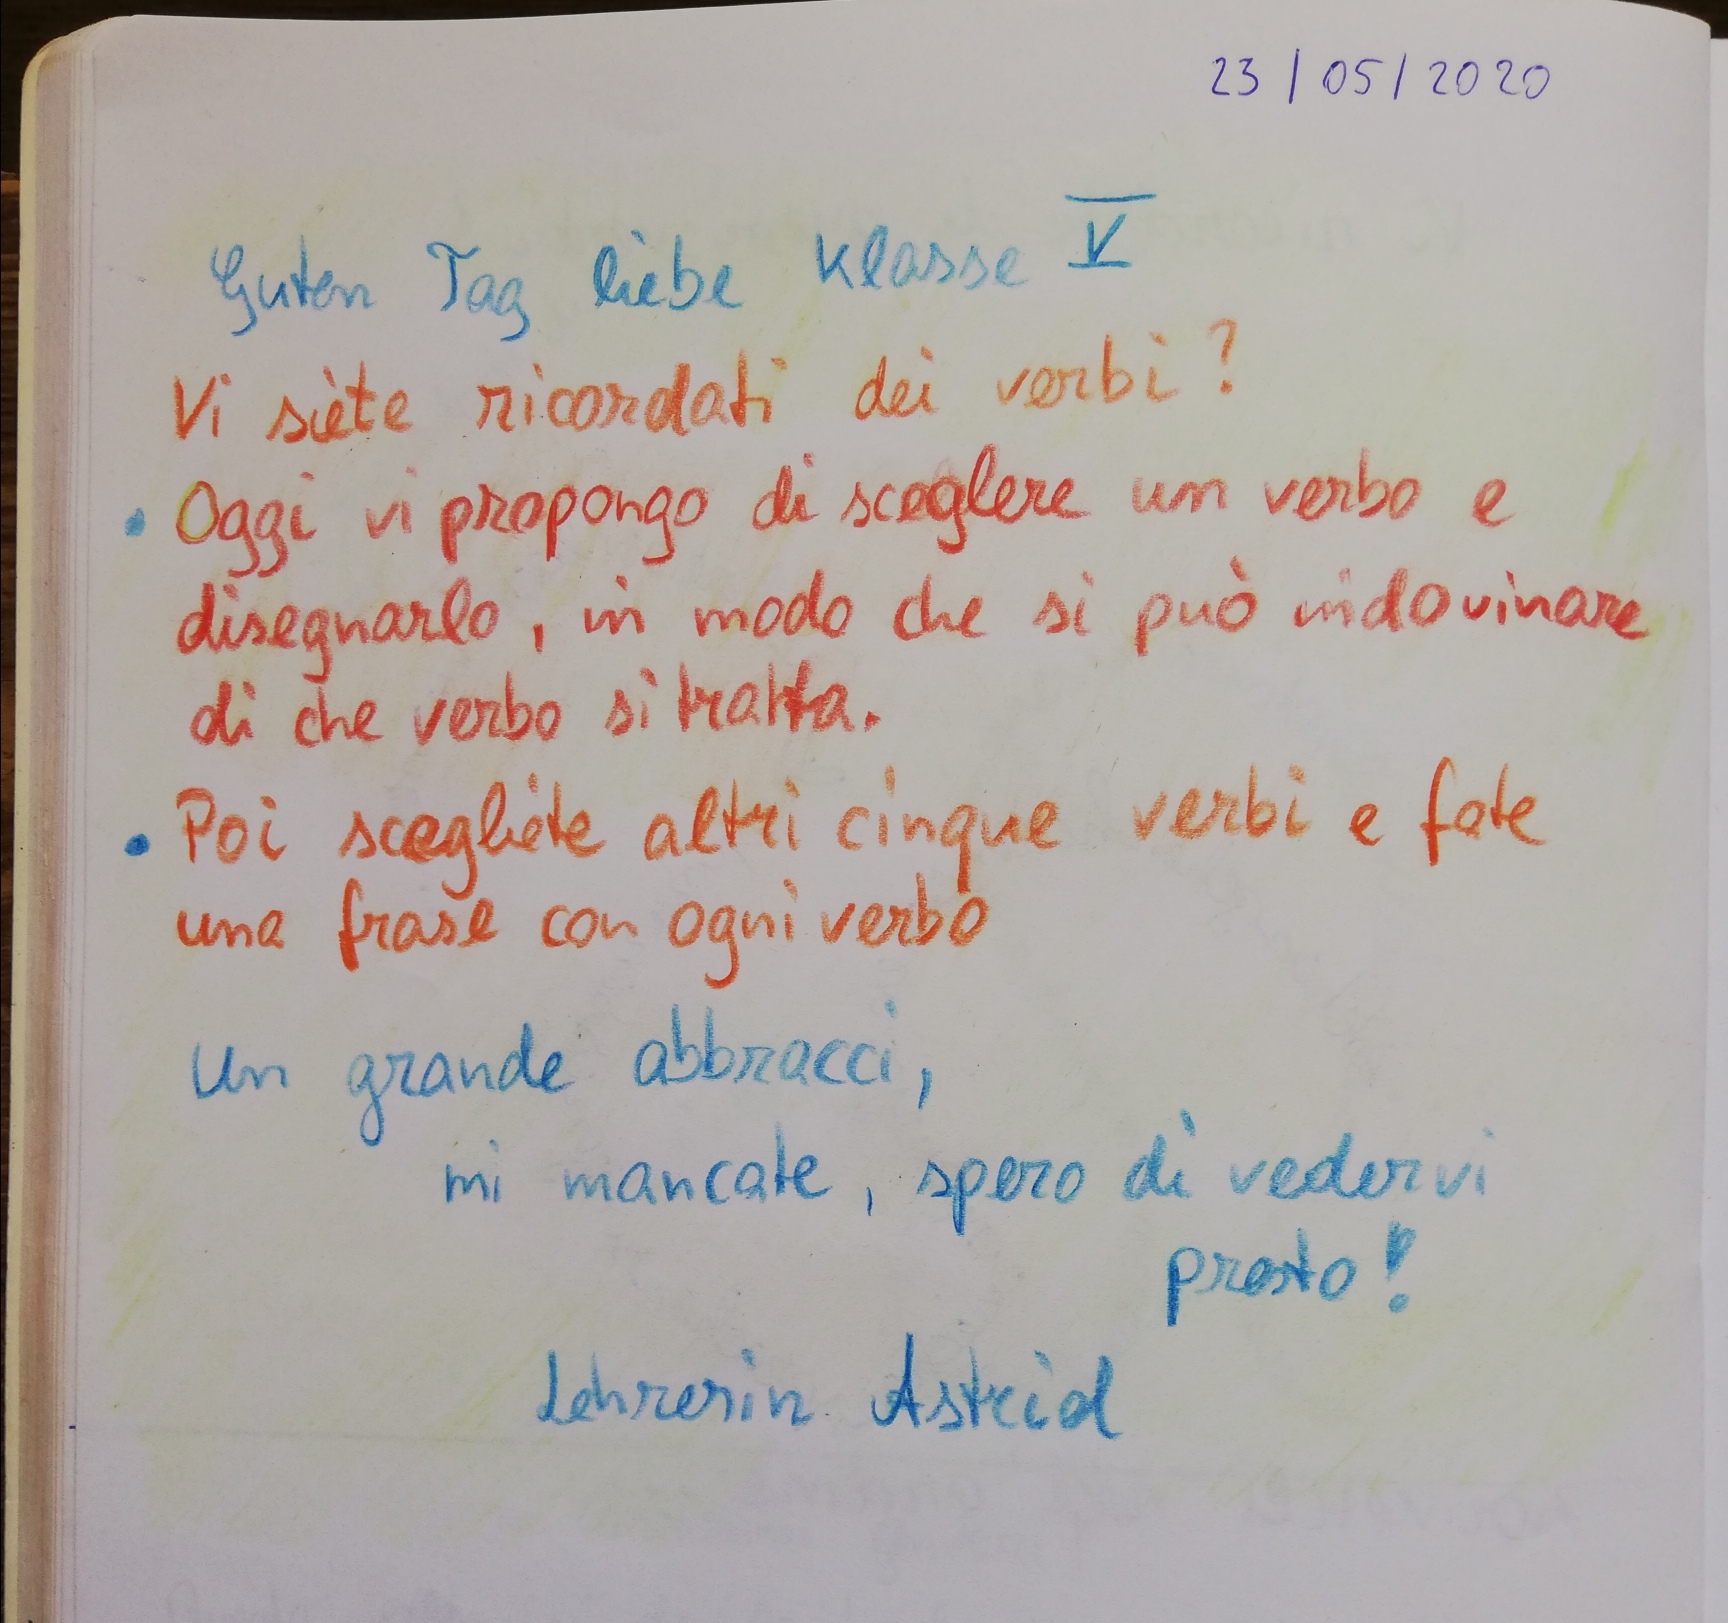 23/05/2020
Guten Tag liebe Klasse V
Vi siete ricordati dei verbi?
• Oggi vi propongo di sceglere un verbo e
disegnarlo, in modo che si può indovinare
di che verbo si tratta.
• Poi scegliete altri cinque verbi e fate
una frase con ogni verbo
Un grande abbracci,
mi mancate, spero di vedervi
presto!
Lehrerin Astrid